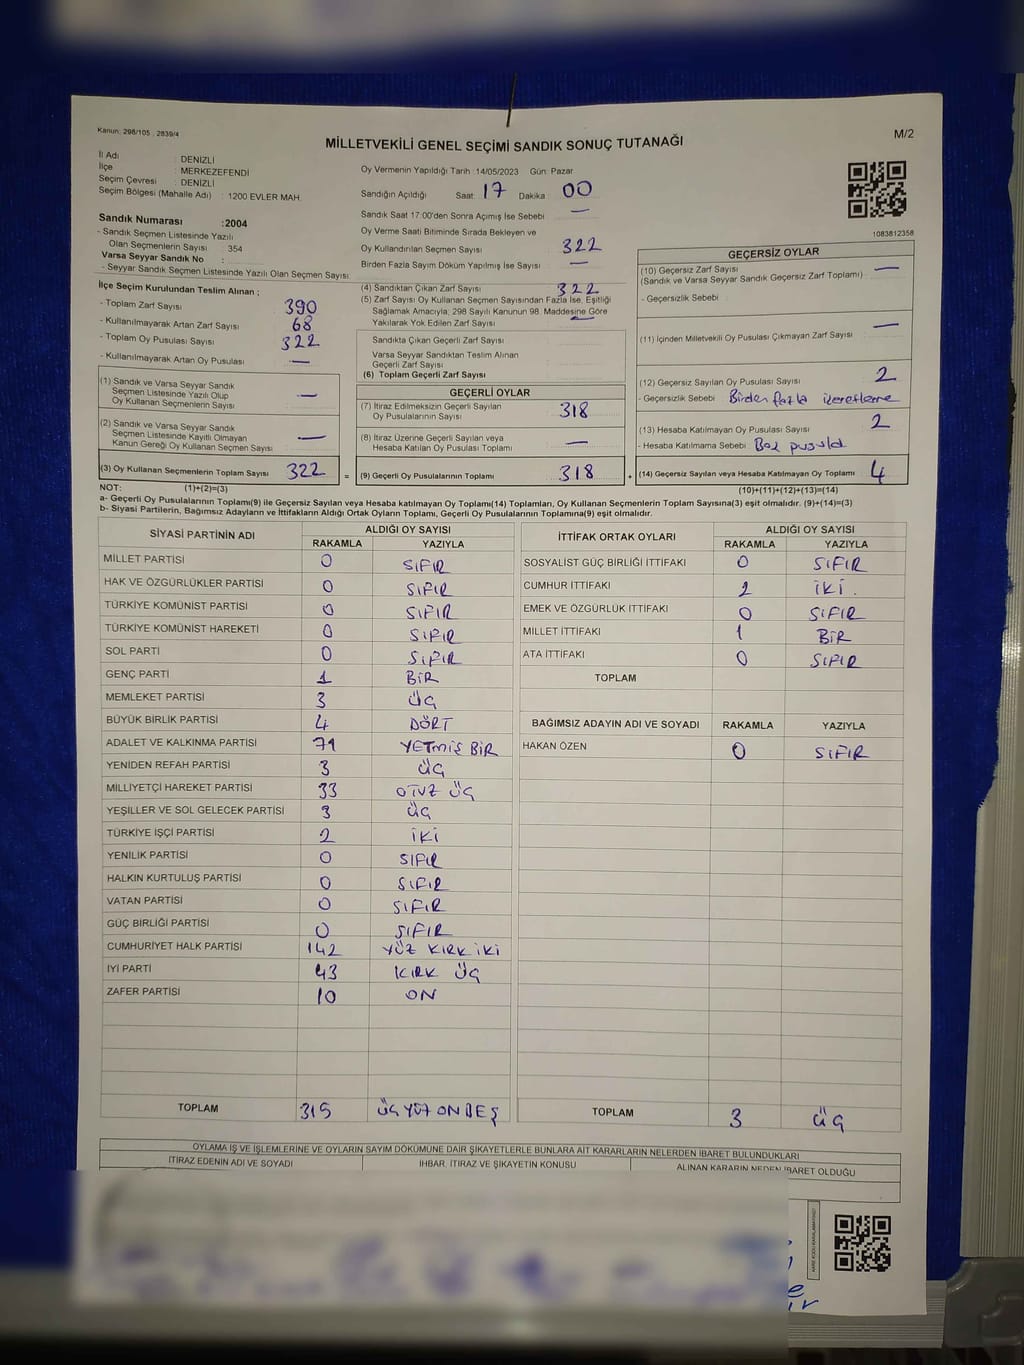 Kanun: 298/105 , 2839/4
M/2
MİLLETVEKİLİ GENEL SEÇİMİ SANDIK SONUÇ TUTANAĞI
İl Adı : DENİZLİ
İlçe : MERKEZEFENDİ
Seçim Çevresi : DENİZLİ
Seçim Bölgesi (Mahalle Adı) : 1200 EVLER MAH.
Sandık Numarası :2004
- Sandık Seçmen Listesinde Yazılı
Olan Seçmenlerin Sayısı : 354
Varsa Seyyar Sandık No :
- Seyyar Sandık Seçmen Listesinde Yazılı Olan Seçmen Sayısı
İlçe Seçim Kurulundan Teslim Alınan ;
- Toplam Zarf Sayısı 390
- Kullanılmayarak Artan Zarf Sayısı 68
- Toplam Oy Pusulası Sayısı 322
- Kullanılmayarak Artan Oy Pusulası —
(1) Sandık ve Varsa Seyyar Sandık
Seçmen Listesinde Yazılı Olup
Oy Kullanan Seçmenlerin Sayısı —
(2) Sandık ve Varsa Seyyar Sandık
Seçmen Listesinde Kayıtlı Olmayan
Kanun Gereği Oy Kullanan Seçmen Sayısı —
(3) Oy Kullanan Seçmenlerin Toplam Sayısı 322 =
Oy Vermenin Yapıldığı Tarih :14/05/2023 Gün: Pazar
Sandığın Açıldığı Saat: 17 Dakika 00
Sandık Saat 17:00'den Sonra Açımış İse Sebebi —
Oy Verme Saati Bitiminde Sırada Bekleyen ve
Oy Kullandırılan Seçmen Sayısı 322
Birden Fazla Sayım Döküm Yapılmış İse Sayısı —
(4) Sandıktan Çıkan Zarf Sayısı 322
(5) Zarf Sayısı Oy Kullanan Seçmen Sayısından Fazla İse, Eşitliği
Sağlamak Amacıyla; 298 Sayılı Kanunun 98. Maddesine Göre
Yakılarak Yok Edilen Zarf Sayısı —
Sandıkta Çıkan Geçerli Zarf Sayısı
Varsa Seyyar Sandıktan Teslim Alınan
Geçerli Zarf Sayısı
(6) Toplam Geçerli Zarf Sayısı
GEÇERLİ OYLAR
(7) İtiraz Edilmeksizin Geçerli Sayılan
Oy Pusulalarının Sayısı 318
(8) İtiraz Üzerine Geçerli Sayılan veya
Hesaba Katılan Oy Pusulası Toplamı —
(9) Geçerli Oy Pusulalarının Toplamı 318 +
1083812358
GEÇERSİZ OYLAR
(10) Geçersiz Zarf Sayısı —
(Sandık ve Varsa Seyyar Sandık Geçersiz Zarf Toplamı)
- Geçersizlik Sebebi :
(11) İçinden Milletvekili Oy Pusulası Çıkmayan Zarf Sayısı —
(12) Geçersiz Sayılan Oy Pusulası Sayısı 2
- Geçersizlik Sebebi : Birden fazla
(13) Hesaba Katılmayan Oy Pusulası Sayısı 2
- Hesaba Katılmama Sebebi :
(14) Geçersiz Sayılan veya Hesaba Katılmayan Oy Toplamı 4
NOT: (1)+(2)=(3) (10)+(11)+(12)+(13)=(14)
a- Geçerli Oy Pusulalarının Toplamı(9) ile Geçersiz Sayılan veya Hesaba katılmayan Oy Toplamı(14) Toplamları, Oy Kullanan Seçmenlerin Toplam Sayısına(3) eşit olmalıdır. (9)+(14)=(3)
b- Siyasi Partilerin, Bağımsız Adayların ve İttifakların Aldığı Ortak Oyların Toplamı, Geçerli Oy Pusulalarının Toplamına(9) eşit olmalıdır.
SİYASİ PARTİNİN ADI ALDIĞI OY SAYISI
RAKAMLA YAZIYLA
MİLLET PARTİSİ 0 SIFIR
HAK VE ÖZGÜRLÜKLER PARTİSİ 0 SIFIR
TÜRKİYE KOMÜNİST PARTİSİ 0 SIFIR
TÜRKİYE KOMÜNİST HAREKETİ 0 SIFIR
SOL PARTİ 0 SIFIR
GENÇ PARTİ 1 BİR
MEMLEKET PARTİSİ 3 ÜÇ
BÜYÜK BİRLİK PARTİSİ 4 DÖRT
ADALET VE KALKINMA PARTİSİ 71 YETMİŞ BİR
YENİDEN REFAH PARTİSİ 3 ÜÇ
MİLLİYETÇİ HAREKET PARTİSİ 33 OTUZ ÜÇ
YEŞİLLER VE SOL GELECEK PARTİSİ 3 ÜÇ
TÜRKİYE İŞÇİ PARTİSİ 2 İKİ
YENİLİK PARTİSİ 0 SIFIR
HALKIN KURTULUŞ PARTİSİ 0 SIFIR
VATAN PARTİSİ 0 SIFIR
GÜÇ BİRLİĞİ PARTİSİ 0 SIFIR
CUMHURİYET HALK PARTİSİ 142 YÜZ KIRK İKİ
İYİ PARTİ 43 KIRK ÜÇ
ZAFER PARTİSİ 10 ON
TOPLAM 315 ÜÇ YÜZ ON BEŞ
İTTİFAK ORTAK OYLARI ALDIĞI OY SAYISI
RAKAMLA YAZIYLA
SOSYALİST GÜÇ BİRLİĞİ İTTİFAKI 0 SIFIR
CUMHUR İTTİFAKI 2 İKİ.
EMEK VE ÖZGÜRLÜK İTTİFAKI 0 SIFIR
MİLLET İTTİFAKI 1 BİR
ATA İTTİFAKI 0 SIFIR
TOPLAM
BAĞIMSIZ ADAYIN ADI VE SOYADI RAKAMLA YAZIYLA
HAKAN ÖZEN 0 SIFIR
TOPLAM 3 ÜÇ
OYLAMA İŞ VE İŞLEMLERİNE VE OYLARIN SAYIM DÖKÜMÜNE DAİR ŞİKAYETLERLE BUNLARA AİT KARARLARIN NELERDEN İBARET BULUNDUKLARI
İTİRAZ EDENİN ADI VE SOYADI İHBAR, İTİRAZ VE ŞİKAYETİN KONUSU ALINAN KARARIN NEDEN İBARET OLDUĞU